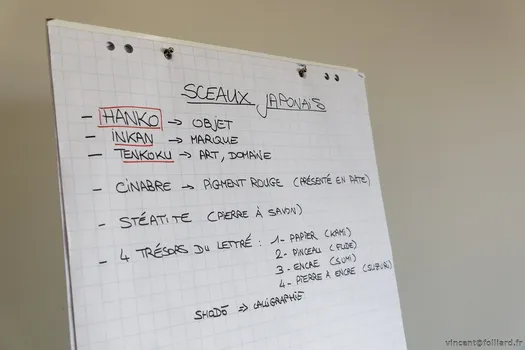 SCEAUX JAPONAIS
- HANKO → OBJET
- INKAN → MARQUE
- TENKOKU → ART, DOMAINE
- CINABRE → PIGMENT ROUGE (PRÉSENTÉ EN PÂTE)
- STÉATITE (PIERRE À SAVON)
- 4 TRÉSORS DU LETTRÉ : 1- PAPIER (KAMI)
2- PINCEAU (FUDE)
3- ENCRE (SUMI)
4- PIERRE À ENCRE (SUZURI)
SHODŌ → CALIGRAPHIE
vincent@folliard.fr